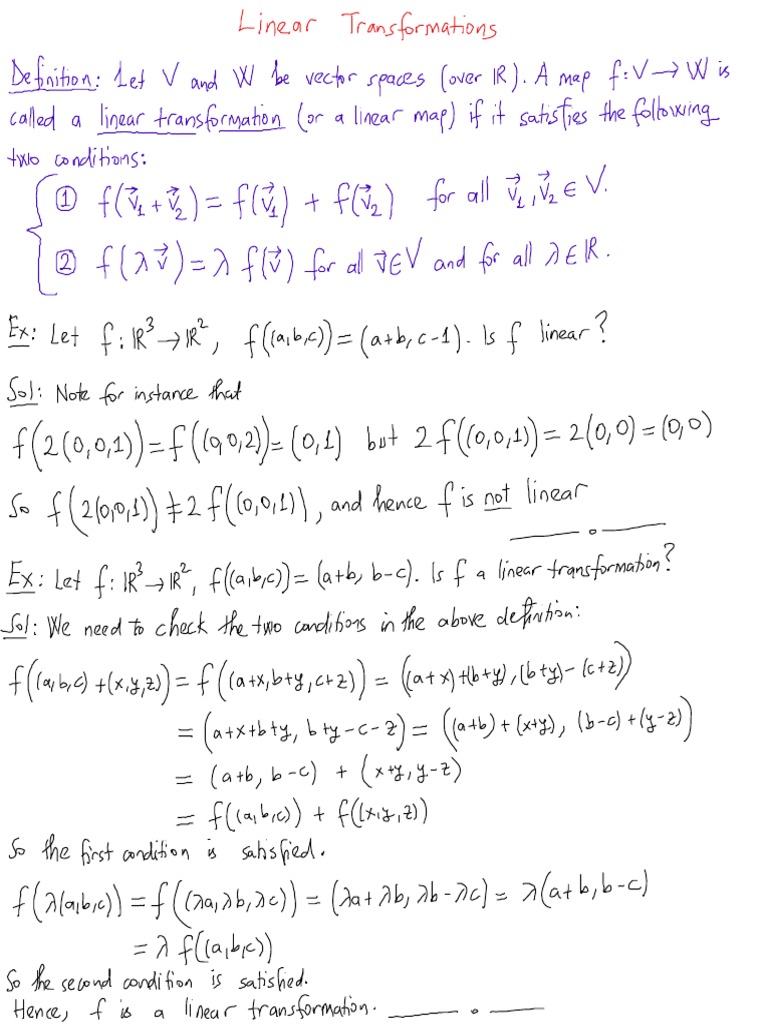 Linear Transformations
Definition: Let V and W be vector spaces (over ℝ). A map f: V → W is
called a linear transformation (or a linear map) if it satisfies the following
two conditions:
① f(v⃗₁ + v⃗₂) = f(v⃗₁) + f(v⃗₂) for all v⃗₁, v⃗₂ ∈ V.
② f(λ v⃗) = λ f(v⃗) for all v⃗ ∈ V and for all λ ∈ ℝ.
Ex: Let f: ℝ³ → ℝ², f((a,b,c)) = (a+b, c-1). Is f linear?
Sol: Note for instance that
f(2(0,0,1)) = f((0,0,2)) = (0,1) but 2 f((0,0,1)) = 2(0,0) = (0,0)
So f(2(0,0,1)) ≠ 2 f((0,0,1)), and hence f is not linear
Ex: Let f: ℝ³ → ℝ², f((a,b,c)) = (a+b, b-c). Is f a linear transformation?
Sol: We need to check the two conditions in the above definition:
f((a,b,c) + (x,y,z)) = f((a+x, b+y, c+z)) = ((a+x)+(b+y), (b+y)-(c+z))
= (a+x+b+y, b+y-c-z) = ((a+b)+(x+y), (b-c)+(y-z))
= (a+b, b-c) + (x+y, y-z)
= f((a,b,c)) + f((x,y,z))
So the first condition is satisfied.
f(λ(a,b,c)) = f((λa, λb, λc)) = (λa+λb, λb-λc) = λ(a+b, b-c)
= λ f((a,b,c))
So the second condition is satisfied.
Hence, f is a linear transformation.